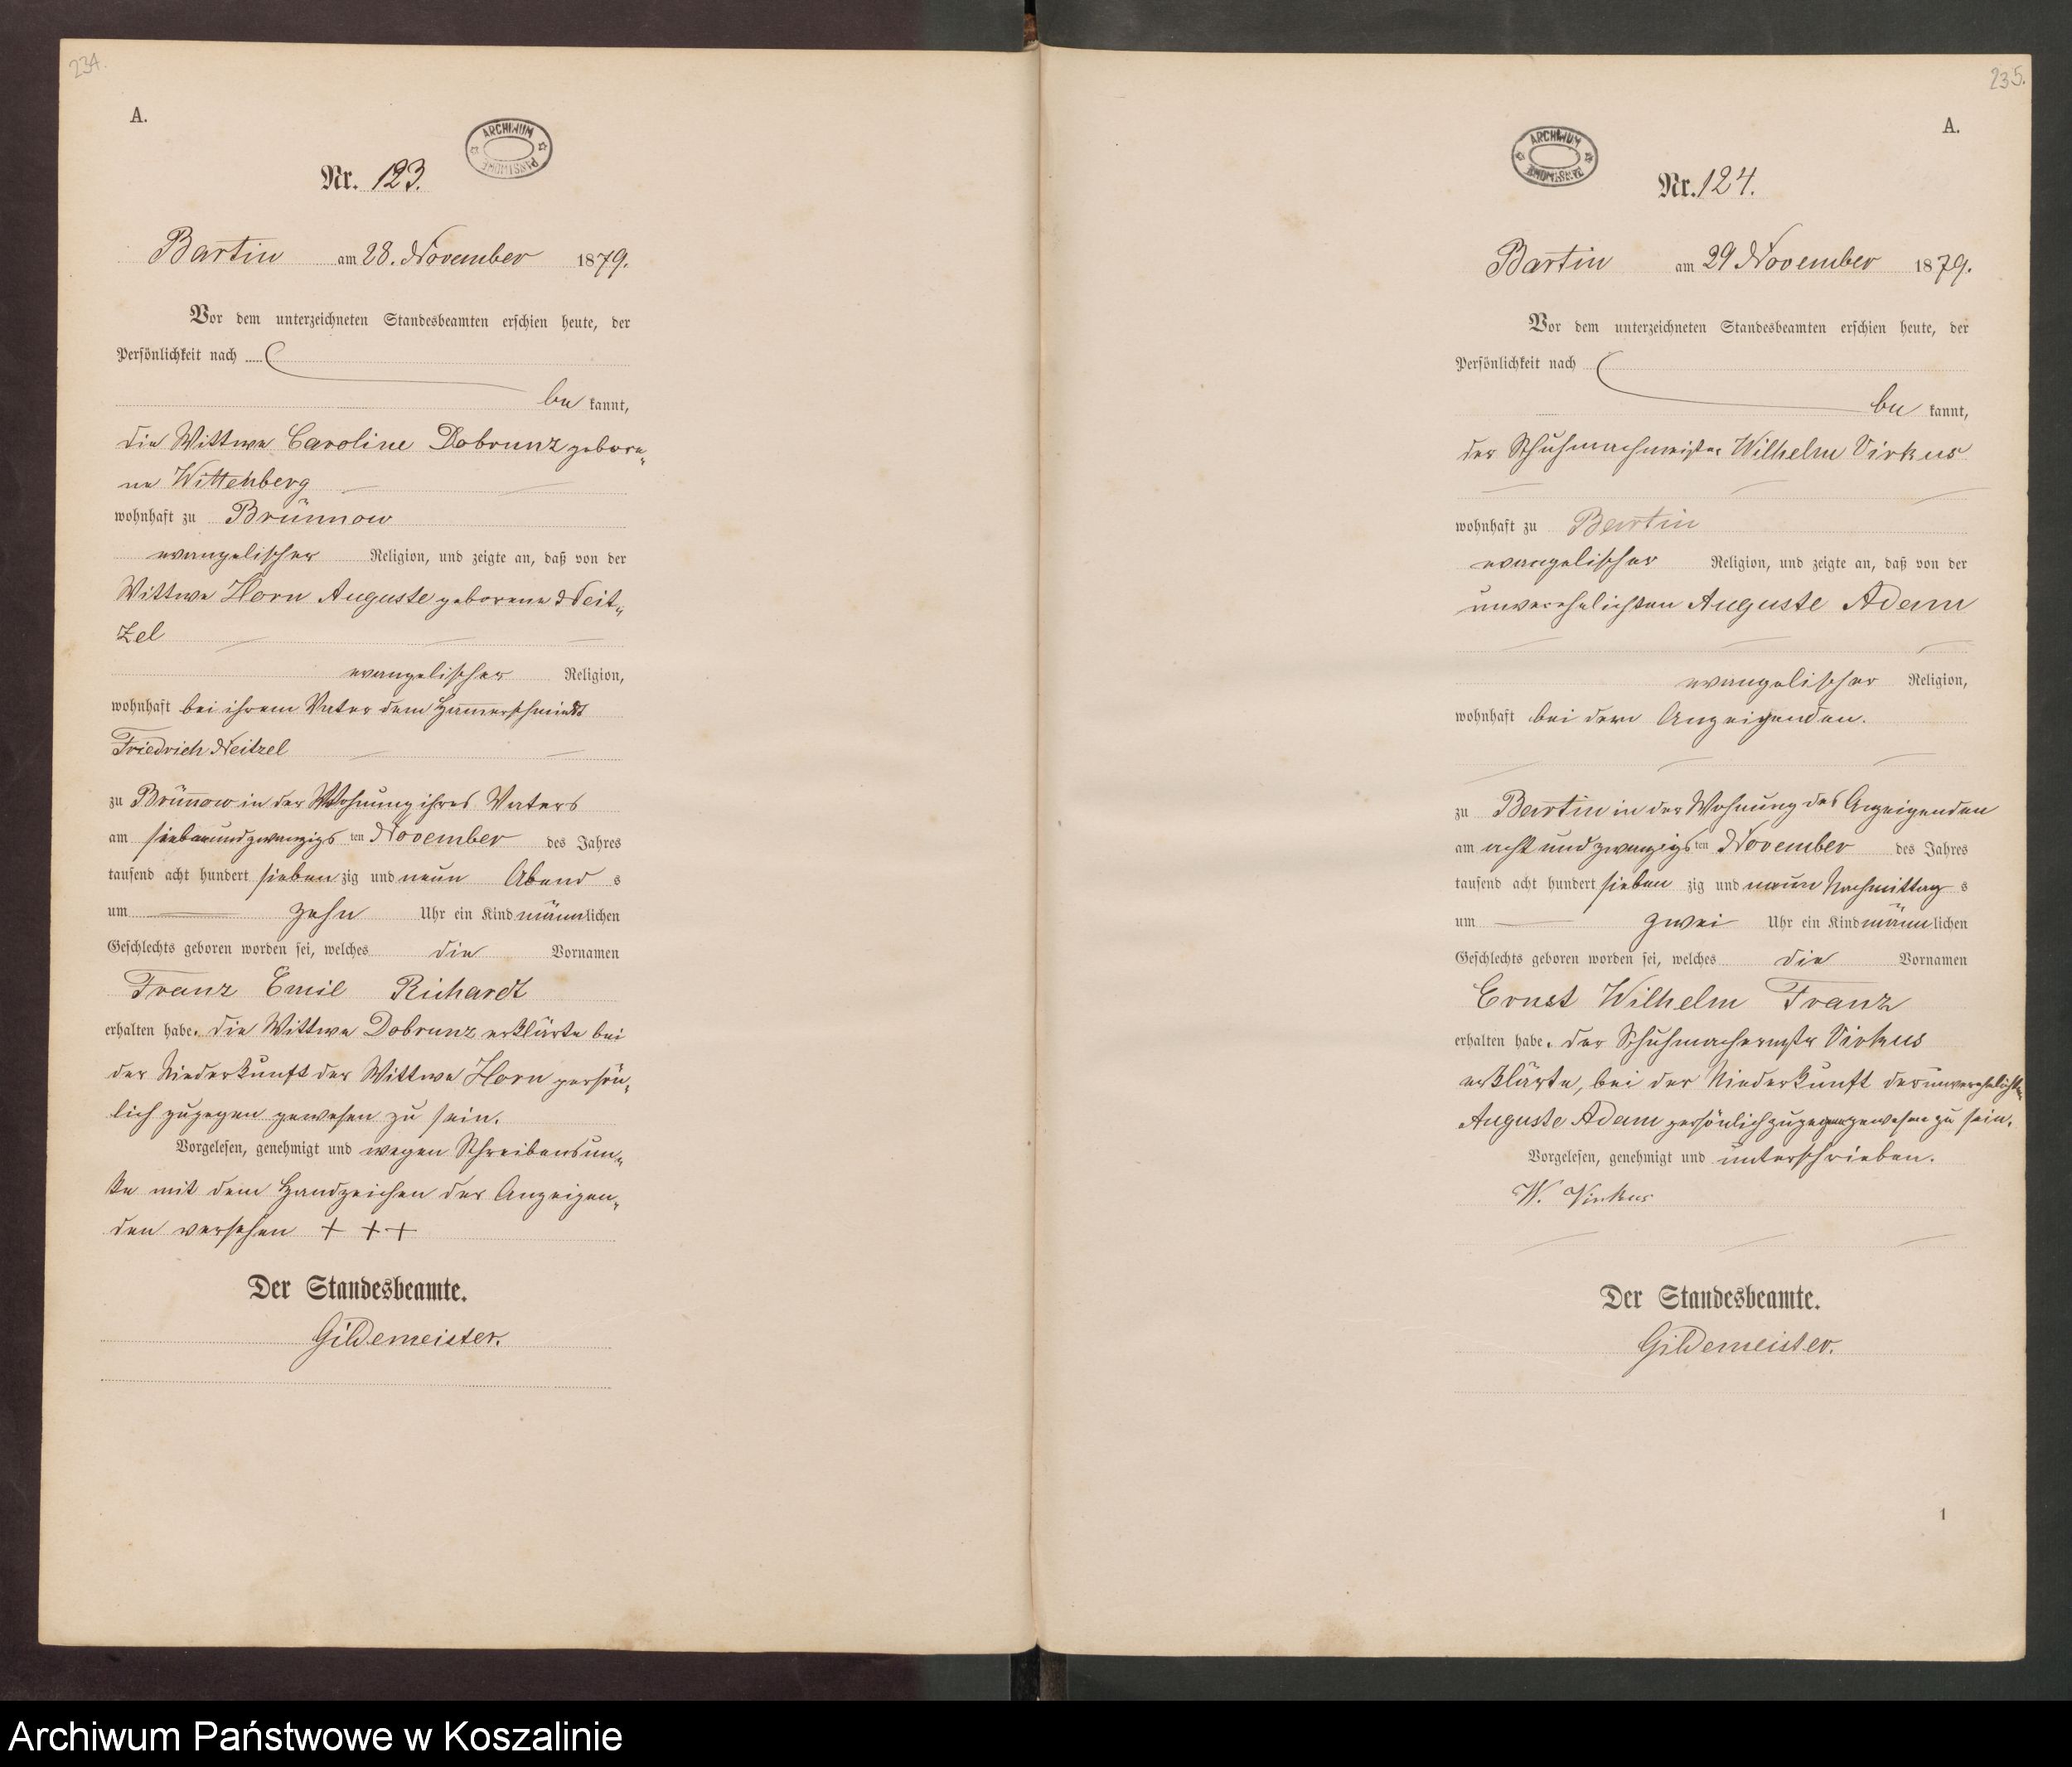 234.
A.
ARCHIWUM PAŃSTWOWE
Nr. 123.
Bartin am 28. November 1879.
Vor dem unterzeichneten Standesbeamten erschien heute, der
Persönlichkeit nach
be kannt,
die Wittwe Caroline Dobrunz gebore„
ne Wittenberg
wohnhaft zu Brünnow
evangelischer Religion, und zeigte an, daß von der
Wittwe Horn Auguste geborene Neit„
zel
evangelischer Religion,
wohnhaft bei ihrem Vater dem Ham̅erschmidt
Friedrich Neitzel
zu Brün̅ow in der Wohnung ihres Vaters
am siebenundzwanzigs ten November des Jahres
tausend acht hundert sieben zig und neun Abend s
um zehn Uhr ein Kind männlichen
Geschlechts geboren worden sei, welches die Vornamen
Franz Emil Richardt
erhalten habe. die Wittwe Dobrunz erklärte bei
der Niederkunft der Wittwe Horn persön„
lich zugegen gewesen zu sein.
Vorgelesen, genehmigt und wegen Schreibensun„
ke mit dem Handzeichen der Anzeigen„
den versehen + + +
Der Standesbeamte.
Gildemeister.
235.
A.
ARCHIWUM
Nr. 124.
Bartin am 29 November 1879.
Vor dem unterzeichneten Standesbeamten erschien heute, der
Persönlichkeit nach
be kannt,
der Schuhmachmeister Wilhelm Virkus
wohnhaft zu Bartin
evangelischer Religion, und zeigte an, daß von der
unverehelichten Auguste Adam
evangelischer Religion,
wohnhaft bei dem Anzeigenden.
zu Bartin in der Wohnung des Anzeigenden
am acht und zwanzigs ten November des Jahres
tausend acht hundert sieben zig und neun Nachmittag s
um zwei Uhr ein Kind männ lichen
Geschlechts geboren worden sei, welches die Vornamen
Ernst Wilhelm Franz
erhalten habe. der Schuhmachermstr Virkus
erklärte, bei der Niederkunft der unverehelichten
Auguste Adam persönlich zugegen gewesen zu sein.
Vorgelesen, genehmigt und unterschrieben.
W. Virkus
Der Standesbeamte.
Gildemeister.
1
Archiwum Państwowe w Koszalinie